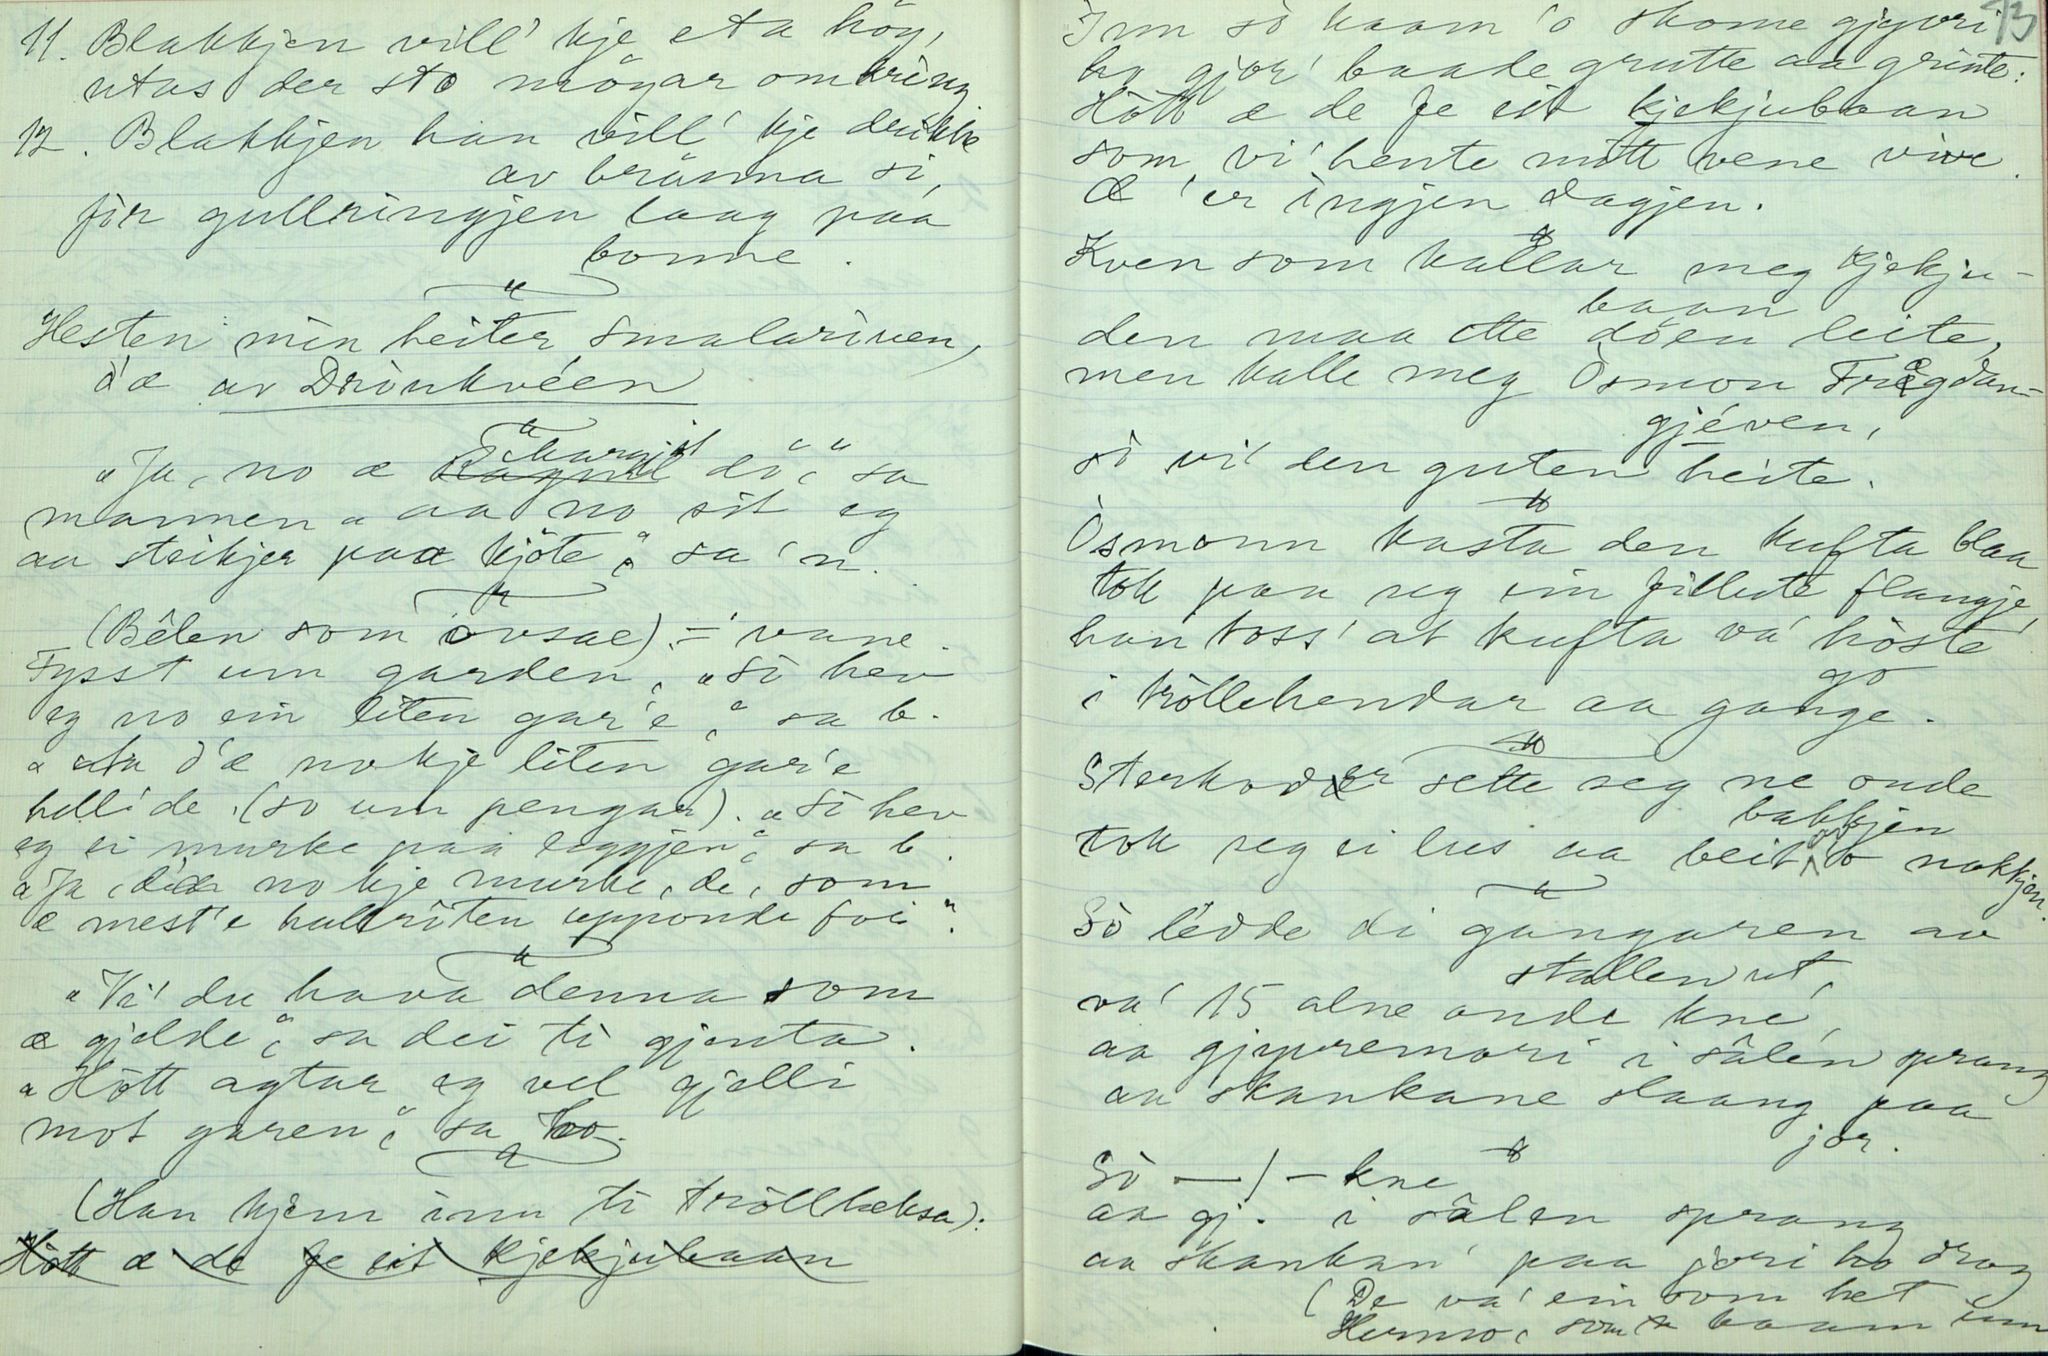 11. Blakkjen vill' kje eta höy,
utas der sto möyar omkring
12. Blakkjen han vill' kje drikke
av brönna si,
för gullringjen laag paa
bonne.
Hesten min heiter Smalariven,
d'æ av Drinkvéen
"Ja, no æ Margjit dö," sa
mannen "aa no sit eg
aa steikjer paa kjöte," sa 'n.
(Bêlen som ovsae) - vane.
Fysst um garden. "Si hev
eg no ein liten gar'e," sa b.
"Aa d'æ no kje liten gar'e
hell' de. (so um pengar). "Si hev
eg ei murke paa leggjen," sa b.
"Ja, d'æ no kje murke, de, som
æ mest'e holsiten upponde foi".
"Vi' du hava denna som
æ gjelde," sa dei ti gjenta.
"Hött agtar eg vel gjelli
mot garen," sa ho.
(Han kjem inn ti tröllheksa):
Hött æ de fe eit kjekjubaan
13
Inn so kaam 'o skome gjyvri
ho gjor' baade grutte aa grinte:
Hött æ de fe eit kjekjubaan
som vi' hente mitt vene vive.
Æ 'er ingjen dagjen.
Kven som kallar meg kjekju-
baan
den maa ette döen leite,
men kalle meg Osmon Frægdan-
gjéven,
so vi' den guten heite.
Osmonn kasta den kufta blaa
tok paa seg ein fillute flangje,
han toss' at kufta va' höste
go
i tröllehendar aa gange.
Sterkodder sette seg ne onde
bakkjen
tok seg ei lus aa beit av o nakkjen.
So ledde di gangaren av
stallen ut,
va' 15 alne onde kne',
aa gjyvremori i sâlen sprang
aa skankane slaang paa
jor.
So — / — kne
aa gj. i sâlen sprang
aa skankan' paa jori ho drog
(De va' ein som het
Hermo, som kaam inn